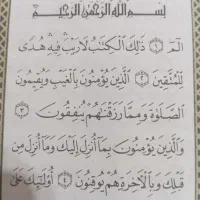 بِسْمِ اللَّهِ الرَّحْمَٰنِ الرَّحِيمِ
الٓمٓ ۝١ ذَٰلِكَ الْكِتَٰبُ لَا رَيْبَ ۛ فِيهِ ۛ هُدًى
لِّلْمُتَّقِينَ ۝٢ الَّذِينَ يُؤْمِنُونَ بِالْغَيْبِ وَيُقِيمُونَ
الصَّلَوٰةَ وَمِمَّا رَزَقْنَٰهُمْ يُنفِقُونَ ۝٣
وَالَّذِينَ يُؤْمِنُونَ بِمَا أُنزِلَ إِلَيْكَ وَمَا أُنزِلَ مِن
قَبْلِكَ وَبِالْآخِرَةِ هُمْ يُوقِنُونَ ۝٤ أُو۟لَٰٓئِكَ عَلَىٰ